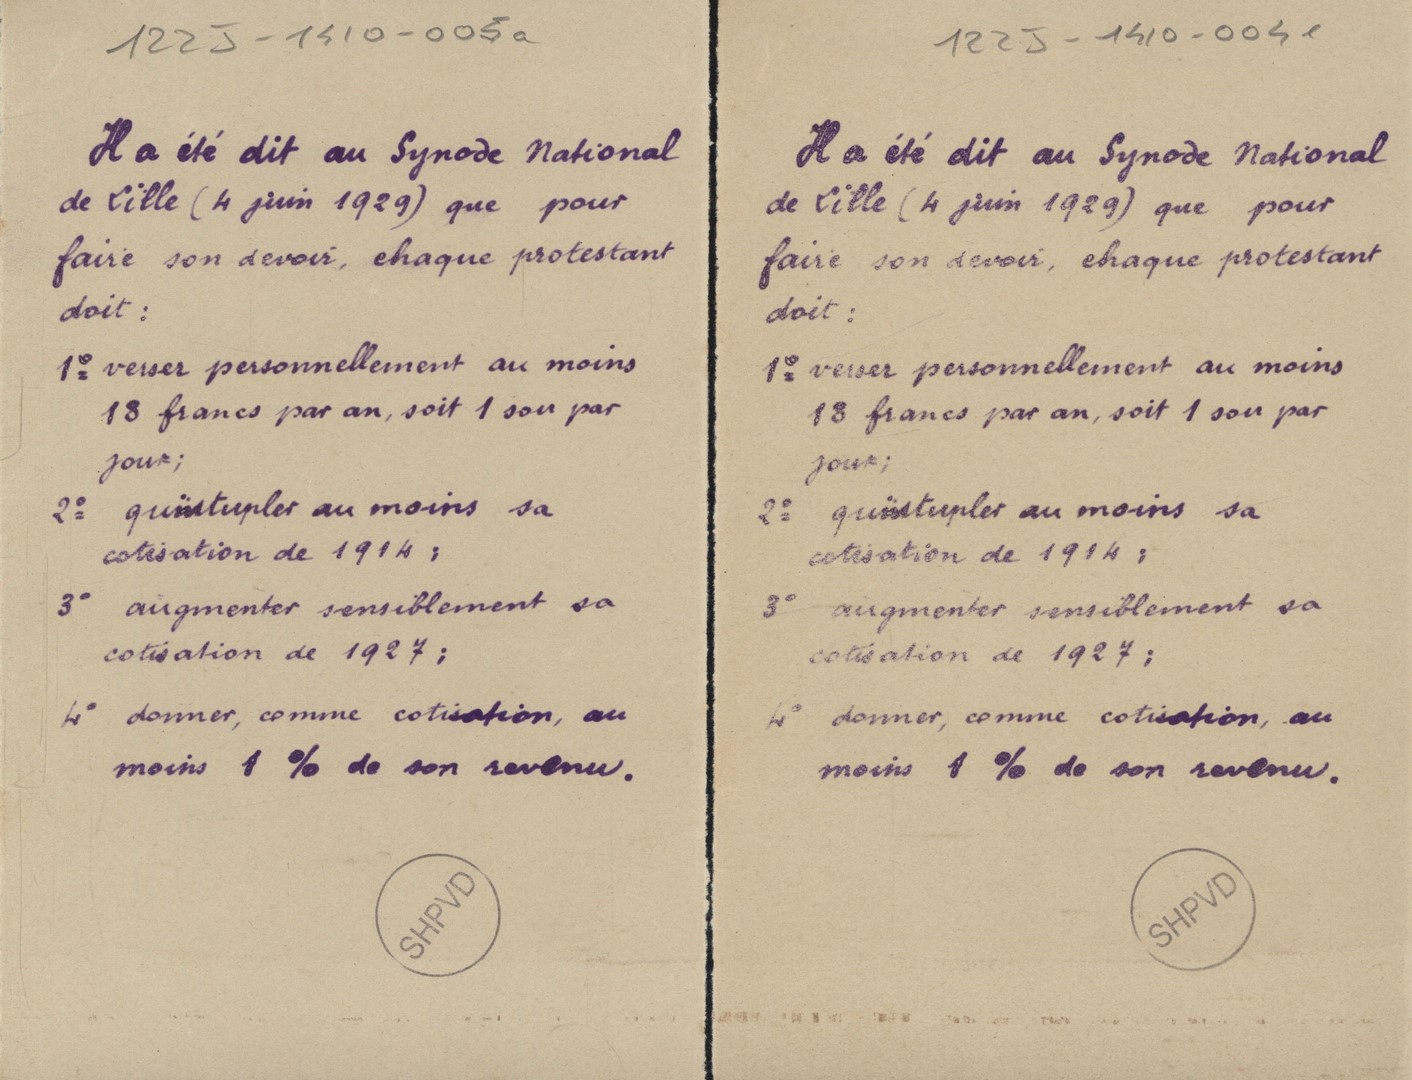 122J-1410-005a
Il a été dit au Synode National
de Lille (4 juin 1929) que pour
faire son devoir, chaque protestant
doit :
1º verser personnellement au moins
18 francs par an, soit 1 sou par
jour;
2º quintupler au moins sa
cotisation de 1914 ;
3º augmenter sensiblement sa
cotisation de 1927 ;
4º donner, comme cotisation, au
moins 1 % de son revenu.
SHPVD
122J-1410-004e
Il a été dit au Synode National
de Lille (4 juin 1929) que pour
faire son devoir, chaque protestant
doit :
1º verser personnellement au moins
18 francs par an, soit 1 sou par
jour;
2º quintupler au moins sa
cotisation de 1914 ;
3º augmenter sensiblement sa
cotisation de 1927 ;
4º donner, comme cotisation, au
moins 1 % de son revenu.
SHPVD